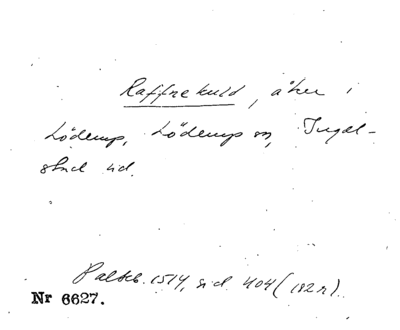 Raffnekuld, åker i
Löderup, Löderups sn, Ingel-
stad hd.
Palteb. 1514, sid. 404 (182 r).
Nr 6627.